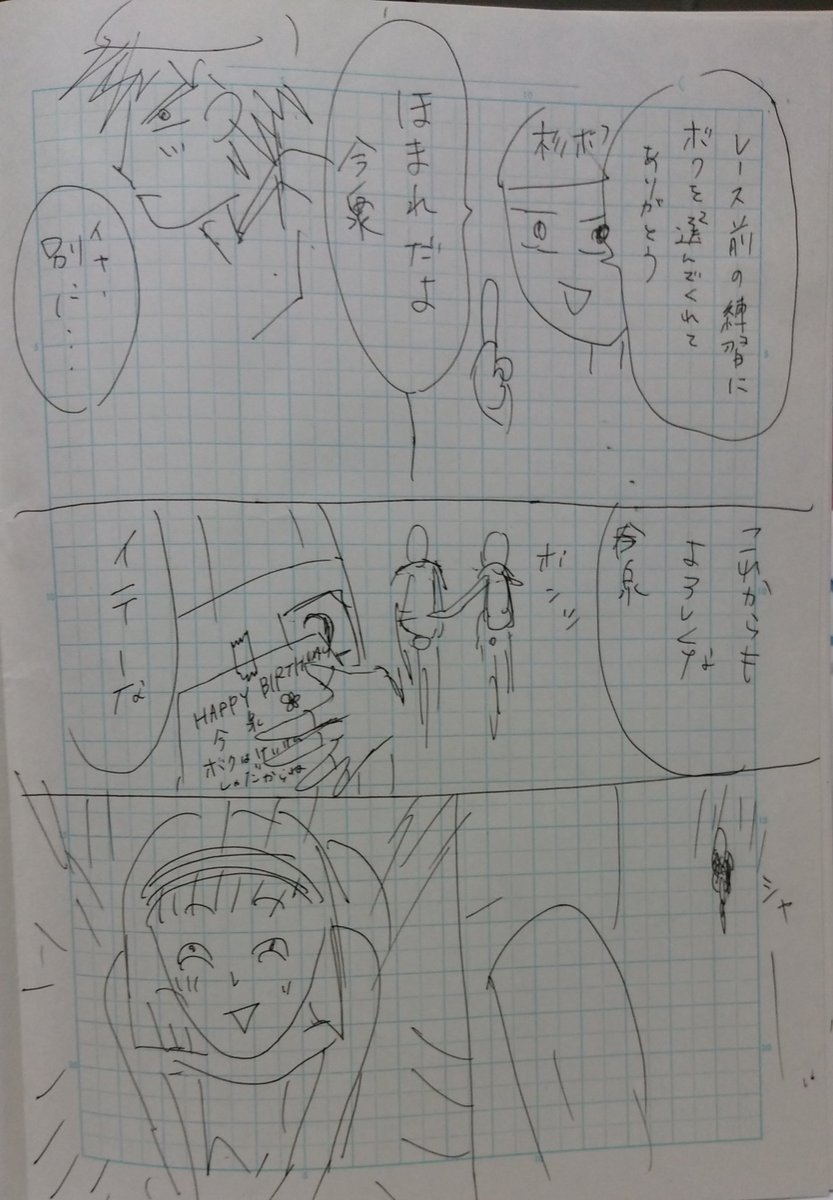 レース前の練習に
ボクを選んでくれて
ありがとう
杉ボ
ほまれだよ
今泉
イヤ、
別に・・・・
これからも
よろしくな
今泉
ポンッ
HAPPY BIRTHDAY
今泉
ボクはけいけん
しゃだからね
イテーな
シャーッ